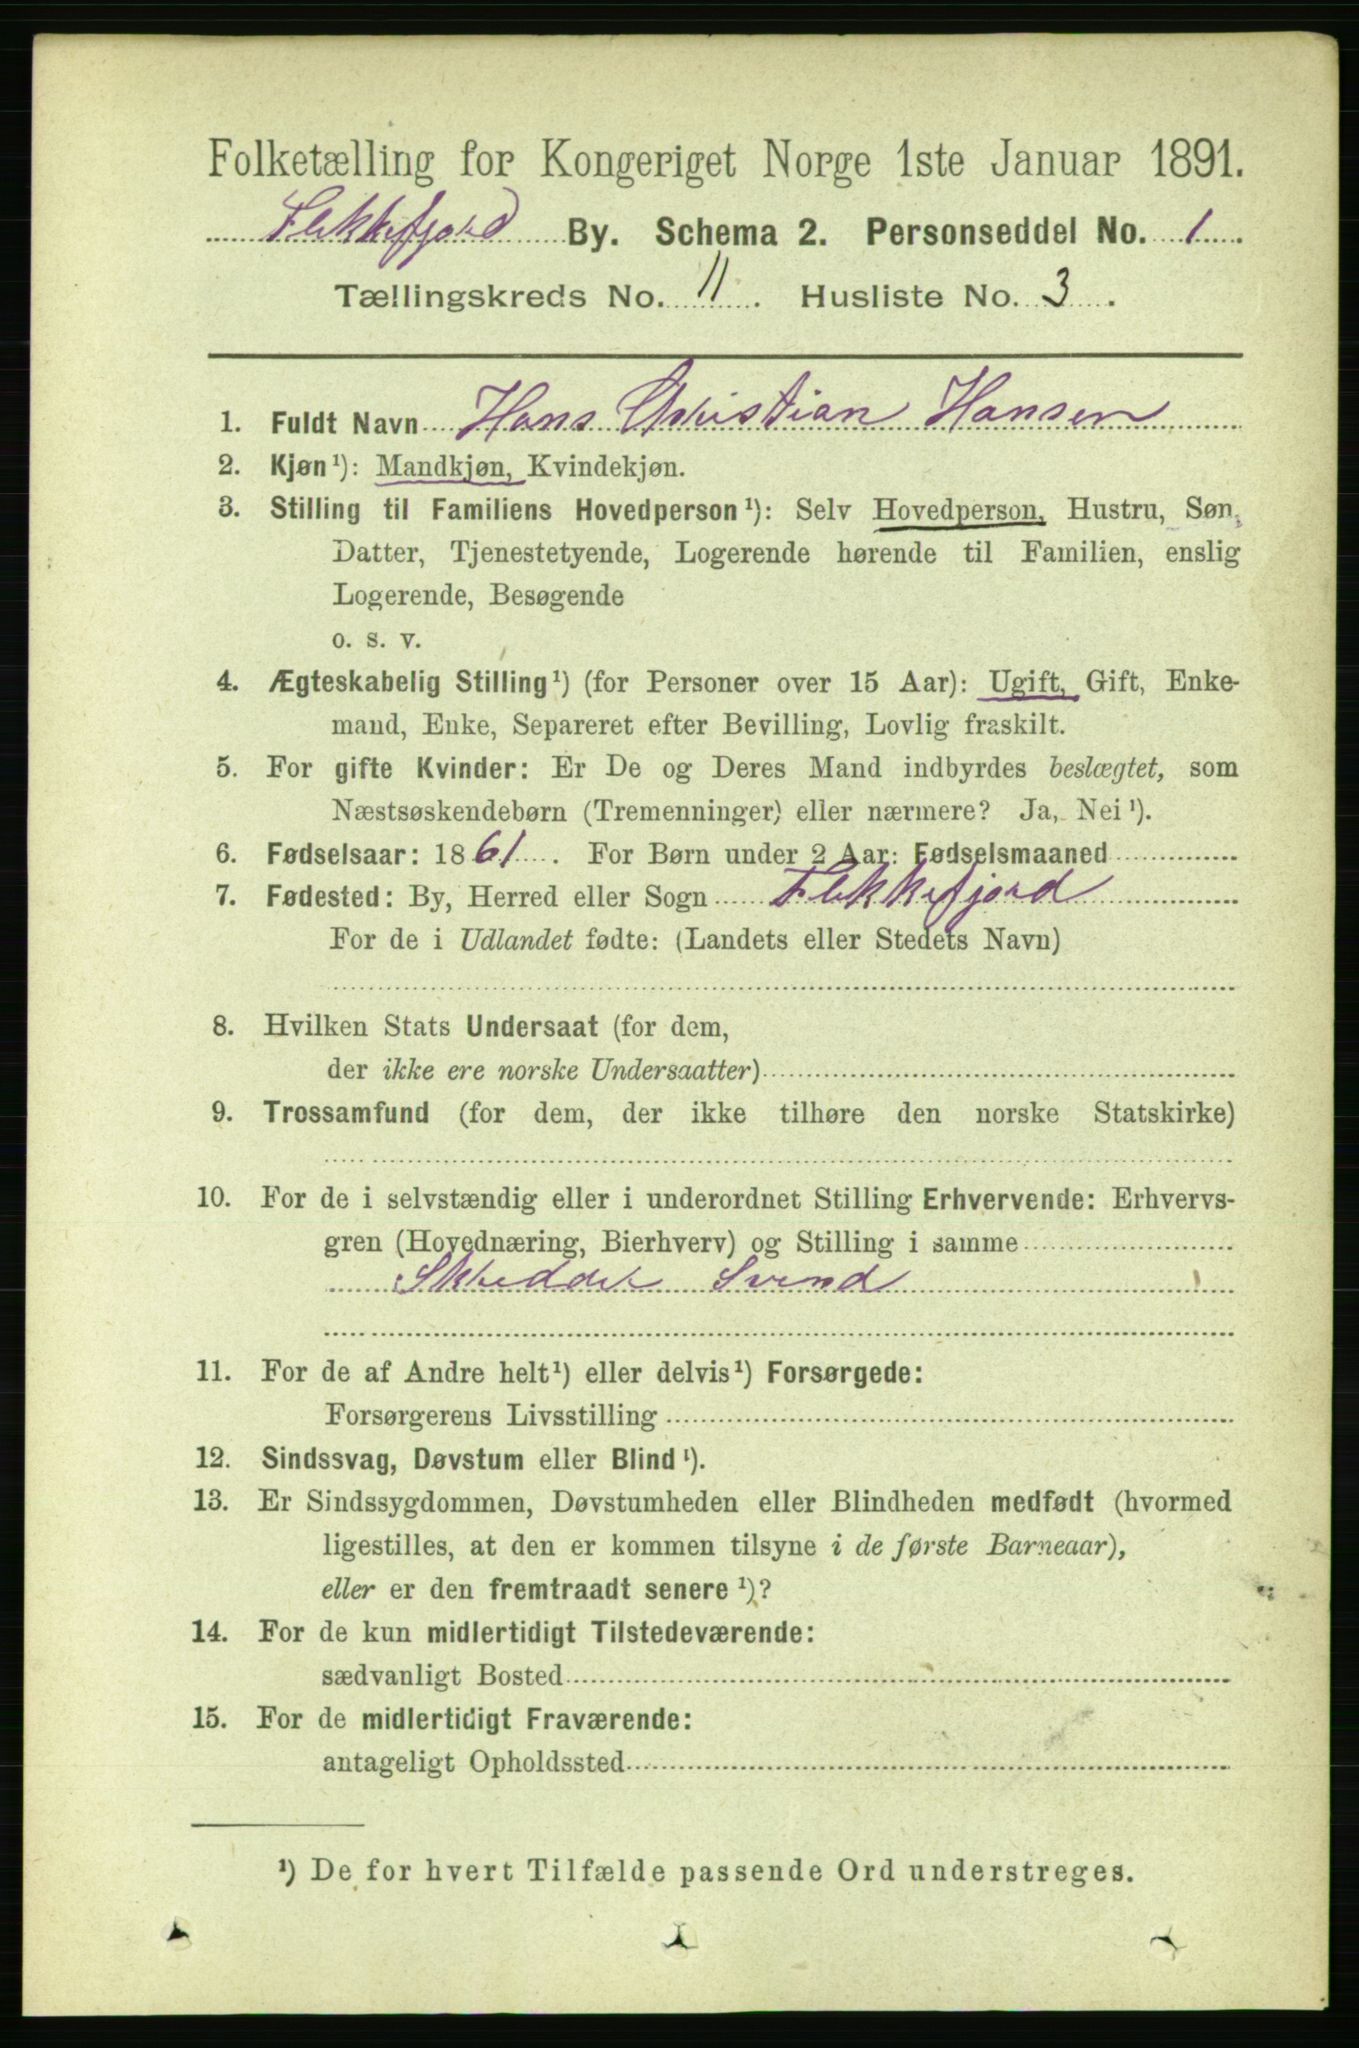 Folketælling for Kongeriget Norge 1ste Januar 1891.
Flekkefjord By. Schema 2. Personseddel No. 1.
Tællingskreds No. 11. Husliste No. 3.
1. Fuldt Navn Hans Christian Hansen
2. Kjøn¹): Mandkjøn, Kvindekjøn.
3. Stilling til Familiens Hovedperson¹): Selv Hovedperson, Hustru, Søn,
Datter, Tjenestetyende, Logerende hørende til Familien, enslig
Logerende, Besøgende
o. s. v.
4. Ægteskabelig Stilling¹) (for Personer over 15 Aar): Ugift, Gift, Enke-
mand, Enke, Separeret efter Bevilling, Lovlig fraskilt.
5. For gifte Kvinder: Er De og Deres Mand indbyrdes beslægtet, som
Næstsøskendebørn (Tremenninger) eller nærmere? Ja, Nei¹).
6. Fødselsaar: 1861. For Børn under 2 Aar: Fødselsmaaned
7. Fødested: By, Herred eller Sogn Flekkefjord
For de i Udlandet fødte: (Landets eller Stedets Navn)
8. Hvilken Stats Undersaat (for dem,
der ikke ere norske Undersaatter)
9. Trossamfund (for dem, der ikke tilhøre den norske Statskirke)
10. For de i selvstændig eller i underordnet Stilling Erhvervende: Erhvervs-
gren (Hovednæring, Bierhverv) og Stilling i samme
Skredder Svend
11. For de af Andre helt¹) eller delvis¹) Forsørgede:
Forsørgerens Livsstilling
12. Sindssvag, Døvstum eller Blind¹).
13. Er Sindssygdommen, Døvstumheden eller Blindheden medfødt (hvormed
ligestilles, at den er kommen tilsyne i de første Barneaar),
eller er den fremtraadt senere¹)?
14. For de kun midlertidigt Tilstedeværende:
sædvanligt Bosted
15. For de midlertidigt Fraværende:
antageligt Opholdssted
¹) De for hvert Tilfælde passende Ord understreges.